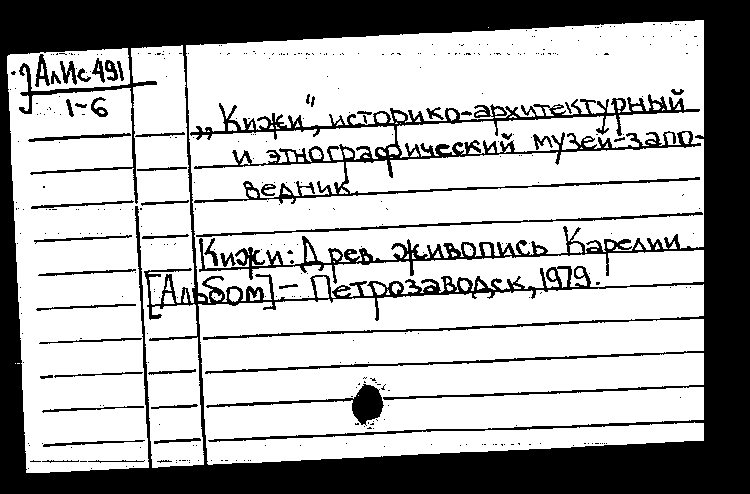 АлИс491
1-6
„Кижи", историко-архитектурный
и этнографический музей-запо-
ведник.
Кижи: Древ. живопись Карелии.
[Альбом].- Петрозаводск, 1979.